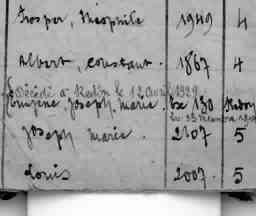 Prosper, Théophile 1949 4
Albert, Constant. 1867 4
Décédé à Redon le 12 Avril 1929
Joseph Marie. Ex 130 Redon
Joseph Marie. 2107 5
Louis 2007. 5